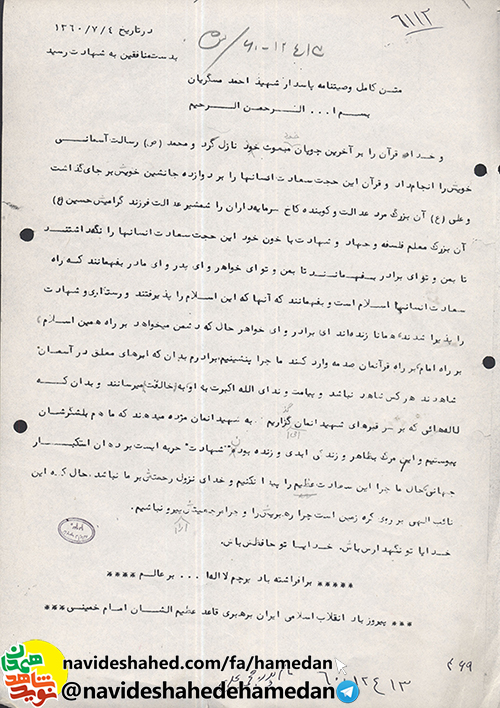 ۶۱۱۲
در تاریخ ۱۳۶۰/۷/۴
بدست منافقین به شهادت رسید
متن کامل وصیتنامه پاسدار شهید احمد عسگریان
بسم ا... الرحمن الرحیم
و خدا قرآن را بر آخرین جویان مبعوث خود نازل کرد و محمد (ص) رسالت آسمانی
خویش را انجام داد و قرآن این حجت سعادت انسانها را بر دوازده جانشین خویش بر جای گذاشت
و علی (ع) آن بزرگ مرد عدالت و کوبنده کاخ سرمایه‌داران را شمشیر عدالت فرزند گرامیش حسین (ع)
آن بزرگ معلم فلسفه و جهاد و شهادت با خون خود این حجت سعادت انسانها را نگهداشتند
تا بمن و تو ای برادر بفهمانند تا بمن و تو ای خواهر و ای پدر و ای مادر بفهمانند که راه
سعادت انسانها اسلام است و بفهمانند که آنها که این اسلام را پذیرفتند و رستگاری و شهادت
را پذیرا شدند همانا زنده‌اند ای برادر و ای خواهر حال که دشمن میخواهد بر راه همین اسلام
بر راه امام بر راه قرآنمان صدمه وارد کنند ما چرا بنشینیم برادرم بدان که ابرهای معلق در آسمان
شاهدند هر کس شاهد نباشد و پیامت و ندای الله اکبرت به او به خالقت میرسانند و بدان که
لاله‌هائی که بر سر قبرهای شهیدانمان گزاریم به شهیدانمان مژده میدهند که ما هم بلشگرشان
پیوستیم و این مرگ بظاهر و زندگی ابدی و زنده بودن "شهادت" حربه ایست بر دهان استکبار
جهانی حال ما چرا این سعادت عظیم را پیدا نکنیم و خدای نزول رحمتش بر ما نباشد، حال که این
نائب الهی بر روی کره زمین است چرا رهبریش را و چرا مرجعیتش پیرو نباشیم.
خدایا تو نگهدارش باش. خدایا تو حافظش باش.
***** برافراشته باد پرچم لااله ا... بر عالم ****
*** پیروز باد انقلاب اسلامی ایران برهبری قاعد عظیم الشان امام خمینی ***
navideshahed.com/fa/hamedan
@navideshahedehamedan
نوید شاهد همدان